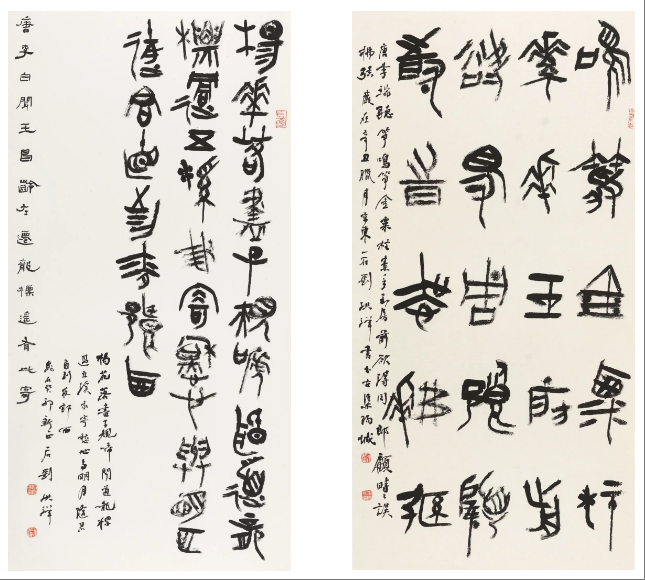 鳴箏金粟柱
素手玉房前
欲得周郎顧
時時誤拂弦
唐李端聽箏鳴箏金粟柱素手玉房前欲得周郎顧時々誤
拂弦歲在辛丑臘月劉洪祥書於古梁
楊華落盡子規啼聞道龍
標過五溪我寄愁心與明月
隨君直到夜郎西
楊花落盡子規啼聞道龍標
過五溪我寄愁心與明月隨君
直到夜郎西
癸卯新正石劉洪祥
唐李白聞王昌齡左遷龍標遙有此寄